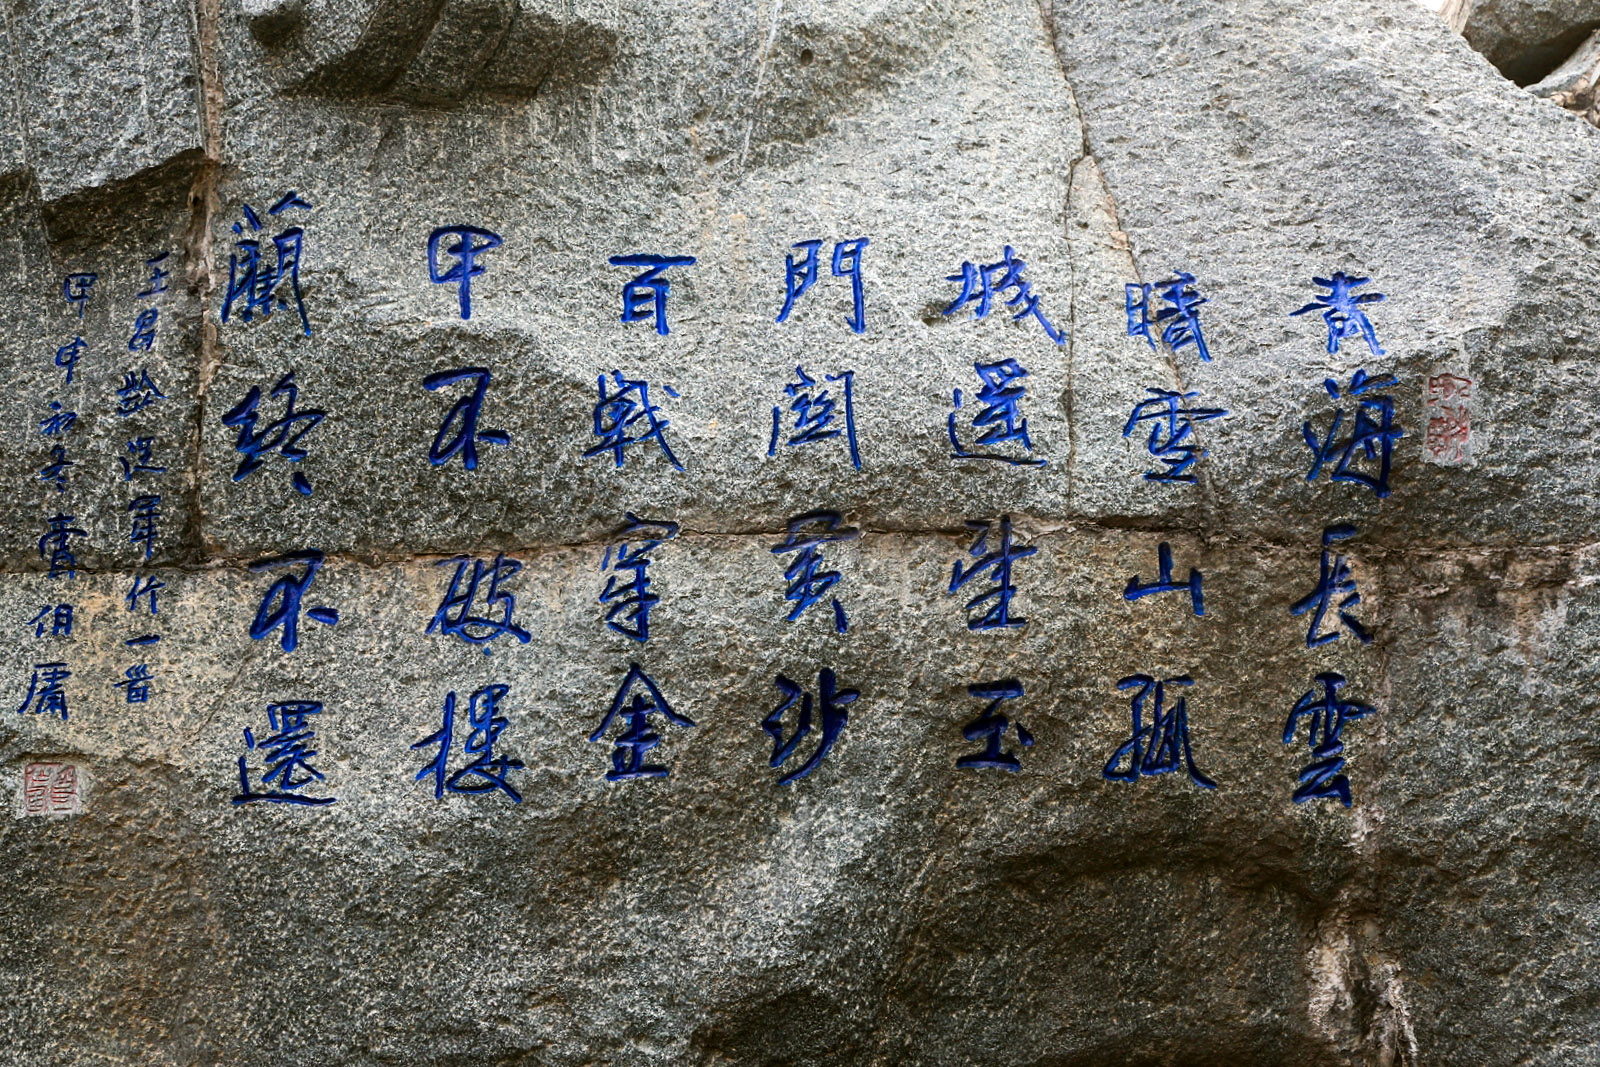 青海長雲
暗雪山孤
城遥望玉
門關黄沙
百戰穿金
甲不破樓
蘭終不還
王昌齡從軍行一首
甲申初冬曹伯庸